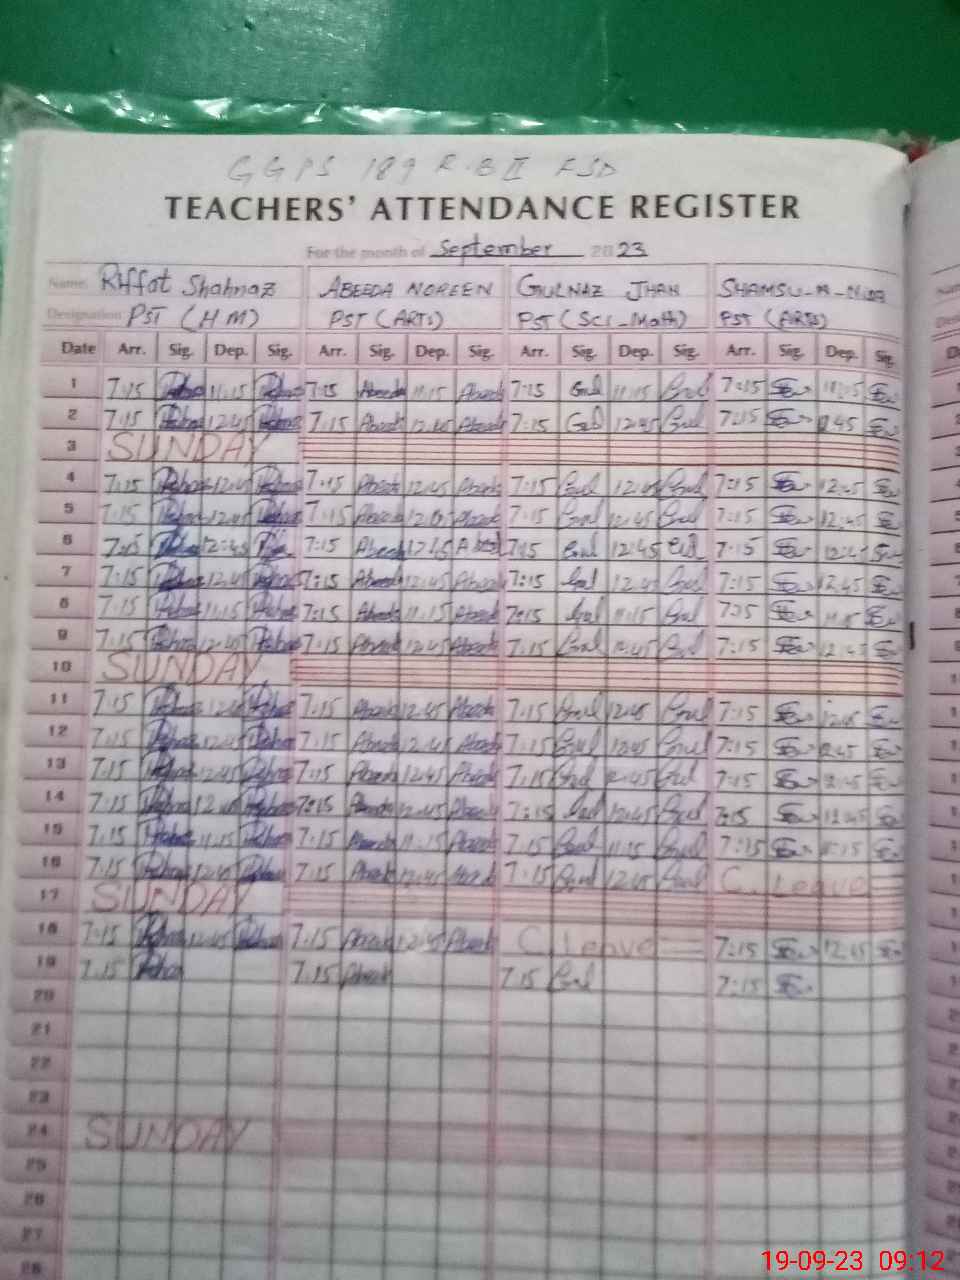 GGPS 189 R.B II FSD
TEACHERS' ATTENDANCE REGISTER
For the month of September 2023
Name: Riffat Shahnaz ABEEDA NOREEN GULNAZ JHAN
Designation PST (HM) PST (ARTS) PST (SCI-Math) PST (ARTS)
Date Arr. Sig. Dep. Sig. Arr. Sig. Dep. Sig. Arr. Sig. Dep. Sig. Arr. Sig. Dep. Sig.
1 7:15 11:15 7:15 Abeeda 11:15 Abeeda 7:15 Gul 11:15 Gul 7:15 11:15
2 7:15 12:45 7:15 Abeeda 12:45 Abeeda 7:15 Gul 12:45 Gul 7:15 12:45
3 SUNDAY
4 7:15 12:45 7:15 Abeeda 12:45 Abeeda 7:15 Gul 12:45 Gul 7:15 12:45
5 7:15 12:45 7:15 Abeeda Abeeda 7:15 Gul 12:45 Gul 7:15 12:45
6 7:15 12:45 7:15 Abeeda Abeeda 7:15 Gul 12:45 Gul 7:15 12:45
7 7:15 12:45 7:15 Abeeda 12:45 Abeeda 7:15 Gul 12:45 Gul 7:15 12:45
8 7:15 11:15 7:15 Abeeda 11:15 Abeeda 7:15 Gul 11:15 Gul 7:15 11:15
9 7:15 12:45 7:15 Abeeda 12:45 Abeeda 7:15 Gul 12:45 Gul 7:15 12:45
10 SUNDAY
11 7:15 12:45 7:15 Abeeda 12:45 Abeeda 7:15 Gul 12:45 Gul 7:15 12:45
12 7:15 12:45 7:15 Abeeda 12:45 Abeeda 7:15 Gul 12:45 Gul 7:15 12:45
13 7:15 12:45 7:15 Abeeda 12:45 Abeeda 7:15 Gul 12:45 Gul 7:15 12:45
14 7:15 12:45 7:15 Abeeda 12:45 Abeeda 7:15 Gul 12:45 Gul 7:15 12:45
15 7:15 11:15 7:15 Abeeda 11:15 Abeeda 7:15 Gul 11:15 Gul 7:15 11:15
16 7:15 12:45 7:15 Abeeda 12:45 Abeeda 7:15 Gul 12:45 Gul C. Leave
17 SUNDAY
18 7:15 12:45 7:15 Abeeda 12:45 Abeeda C. Leave 7:15 12:45
19 7:15 7:15 Abeeda 7:15 Gul 7:15
20
21
22
23
24 SUNDAY
25
26
27
28
19-09-23 09:12